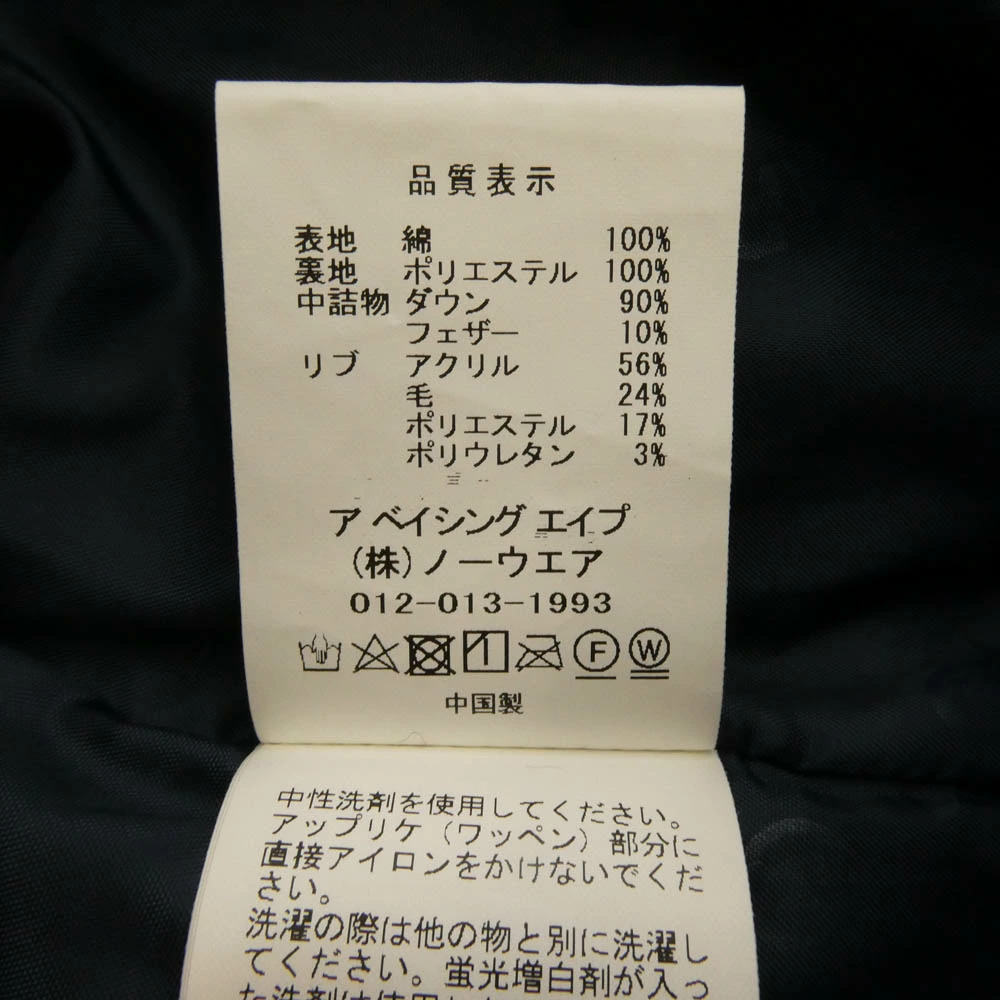 品質表示
表地 綿 100%
裏地 ポリエステル 100%
中詰物 ダウン 90%
フェザー 10%
リブ アクリル 56%
毛 24%
ポリエステル 17%
ポリウレタン 3%
ア ベイシング エイプ
(株)ノーウエア
012-013-1993
F W
中国製
中性洗剤を使用してください。
アップリケ(ワッペン)部分に
直接アイロンをかけないでくだ
さい。
洗濯の際は他の物と別に洗濯し
てください。蛍光増白剤が入っ
た洗剤は使用し